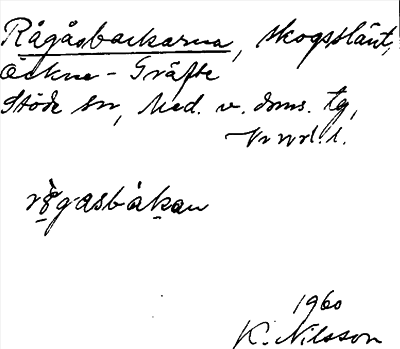 Rågåsbackarna, skogsslänt,
Öckne - Gräfte
Stöde sn, Med. v. doms. tg,
Vnrl. l.
rögasbákan
1960
K. Nilsson